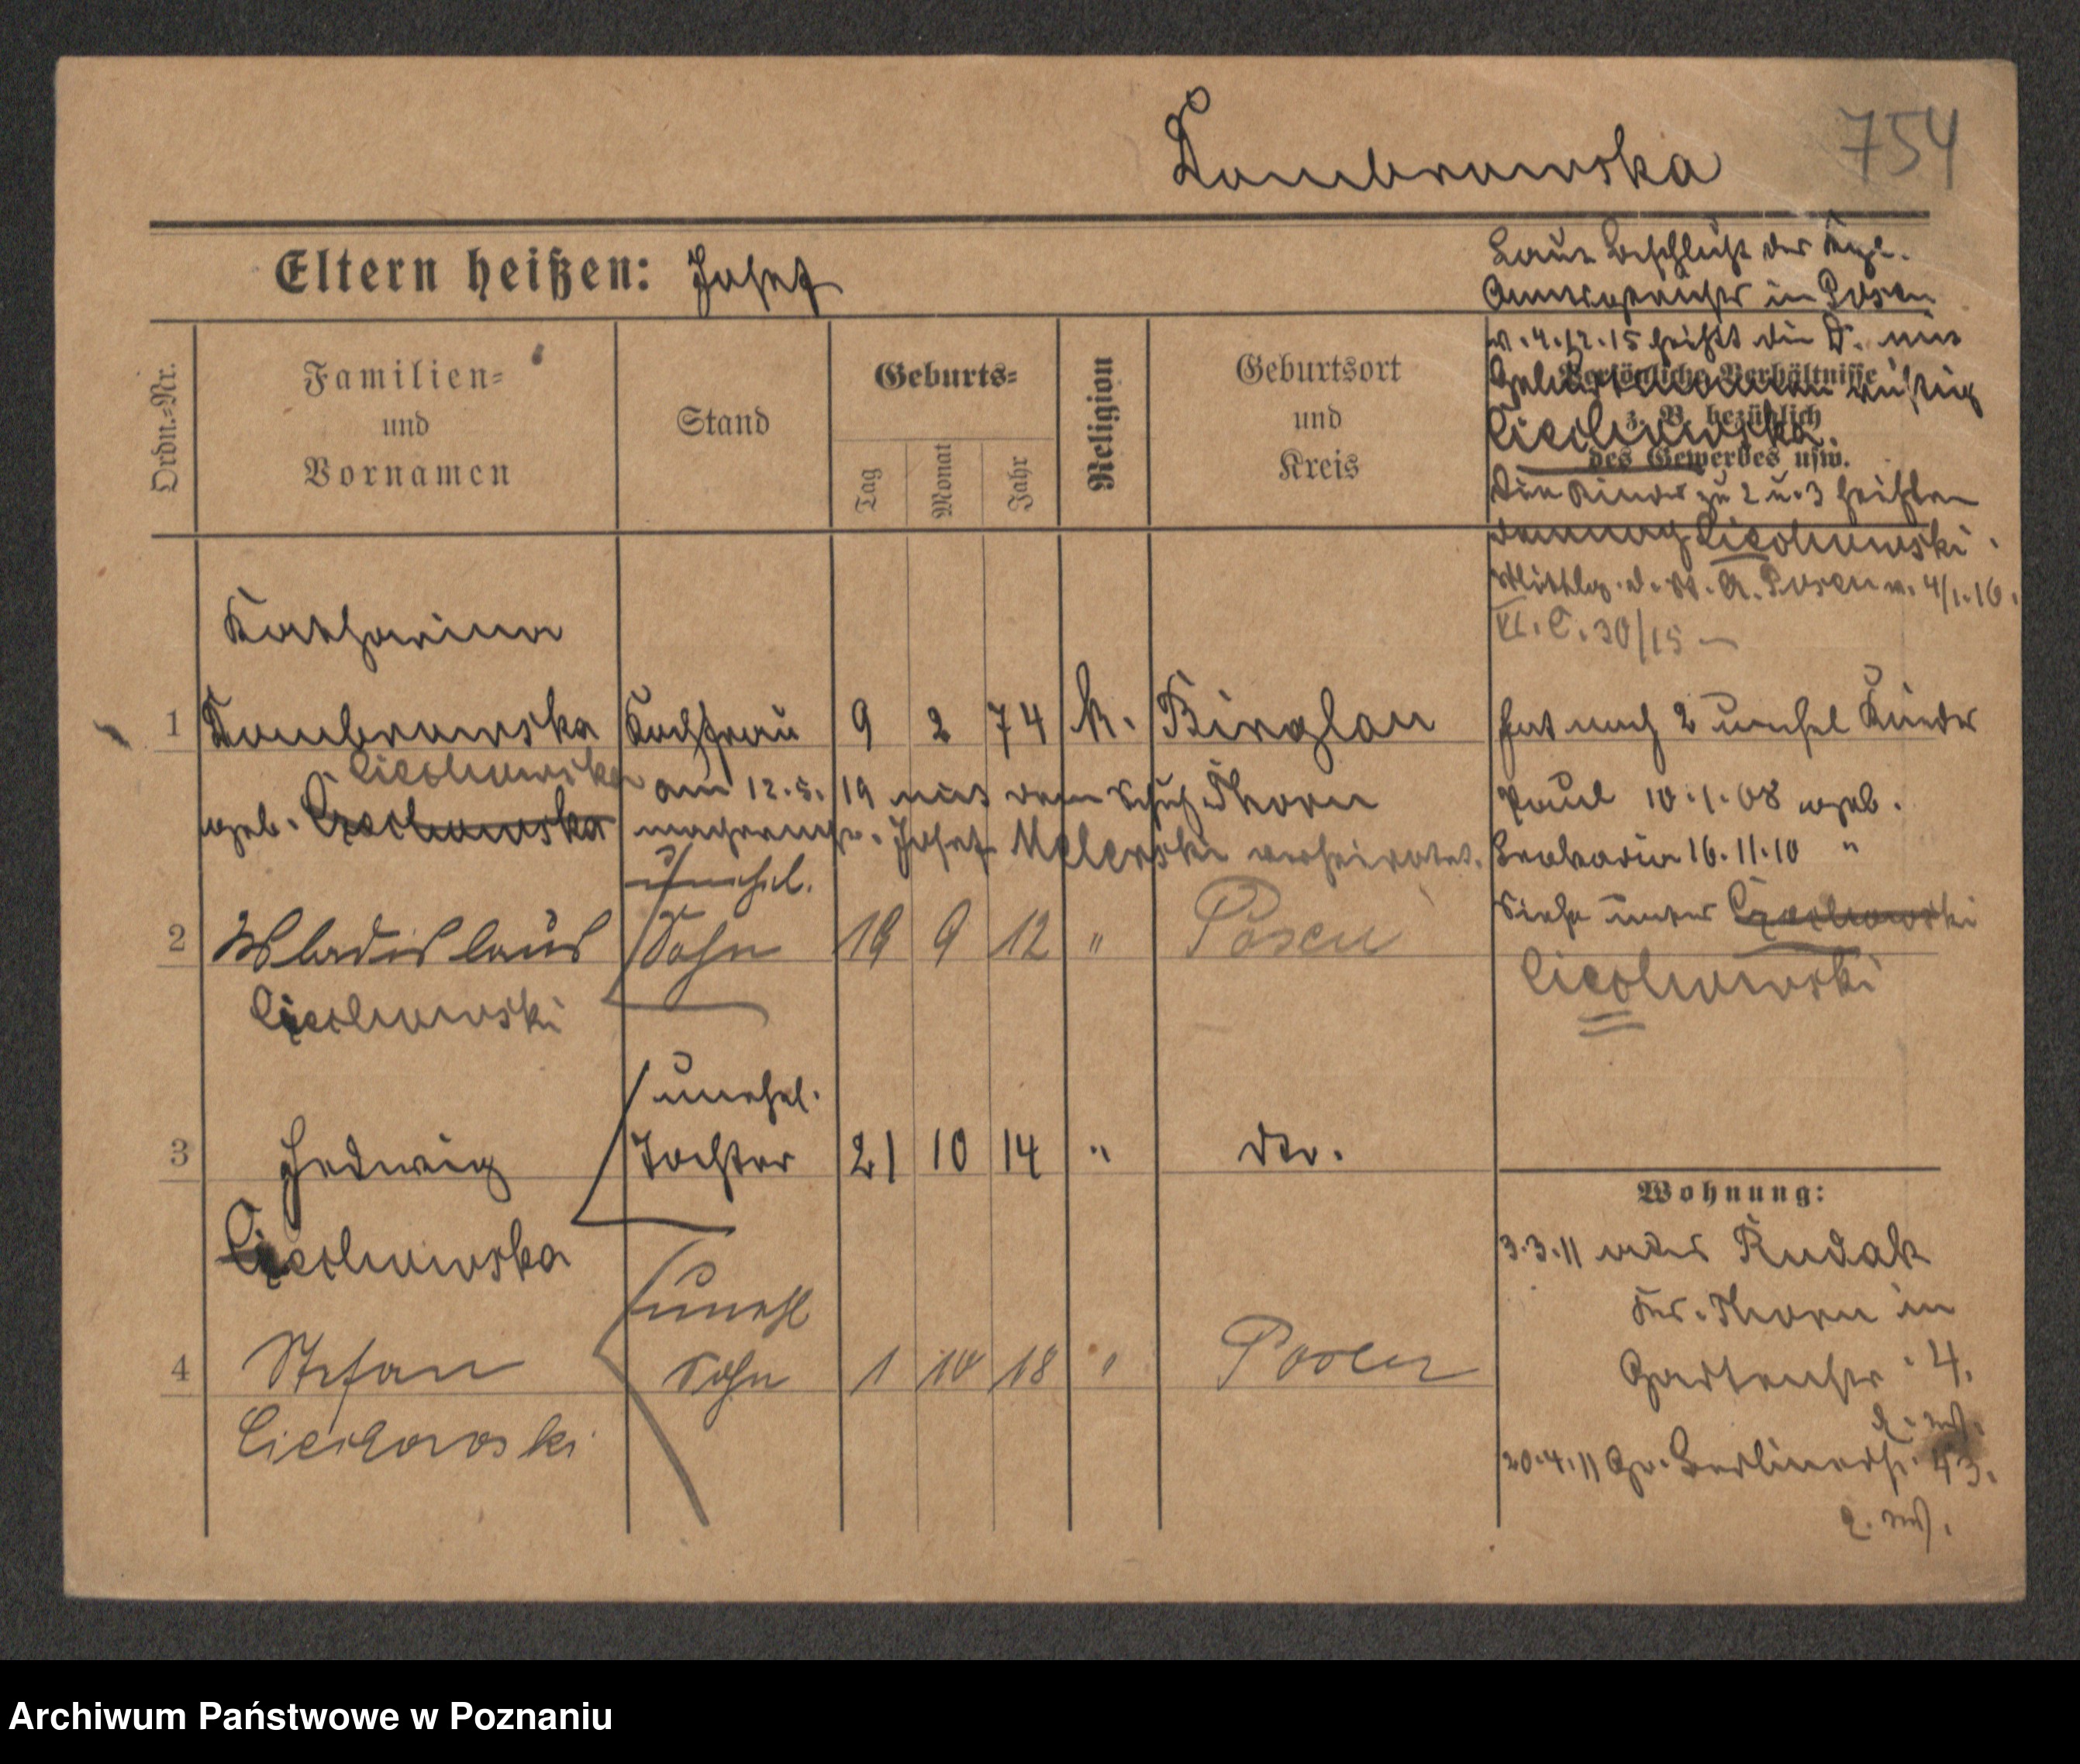 754
Dombrowska
Eltern heißen: Josef
Laut Beschluß des Kgl.
Amtsgerichts in Posen
v. 4.12.15 heißt die D. mit
Geburtsnamen richtig
Ciechowska.
Die Kinder zu 2 u. 3 heißen
demnach Ciechowski.
Mittlg. d. St. A. Posen v. 4/1.16.
VI. C. 30/15 —
Ordn.-Nr.
Familien-
und
Vornamen
Stand
Geburts-
Tag
Monat
Jahr
Religion
Geburtsort
und
Kreis
Persönliche Verhältnisse
z. B. bezüglich
des Gewerbes usw.
Katharina
1 Dombrowska Kochfrau 9 2 74 k. Birglau
Thorn
Ciechowska
geb. Czechowska
am 12.5.19 mit dem Schuh-
machermstr. Josef Melerski verheiratet.
hat noch 2 unehel Kinder
Paul 10.1.08 geb.
Leokadia 16.11.10 "
Siehe unter Czechowski
Ciechowski
unehel.
2 Wladislaus Sohn 19 9 12 " Posen
Ciechowski
unehel.
3 Hedwig Tochter 21 10 14 " dto.
Ciechowska
unehl
4 Stefan Sohn 1 10 18 " Posen
Ciechowski
Wohnung:
3.3.11 aus Rudak
Krs. Thorn in
Gartenstr. 4.
20.4.11 Gr. Berlinerstr. 43.
Archiwum Państwowe w Poznaniu